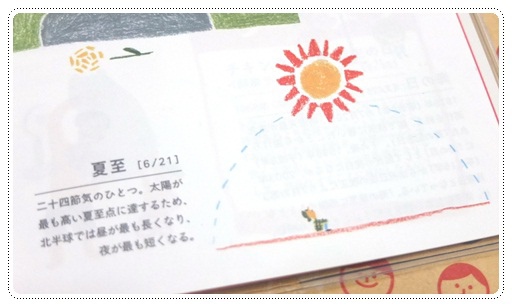 夏至 [6/21]
二十四節気のひとつ。太陽が
最も高い夏至点に達するため、
北半球では昼が最も長くなり、
夜が最も短くなる。